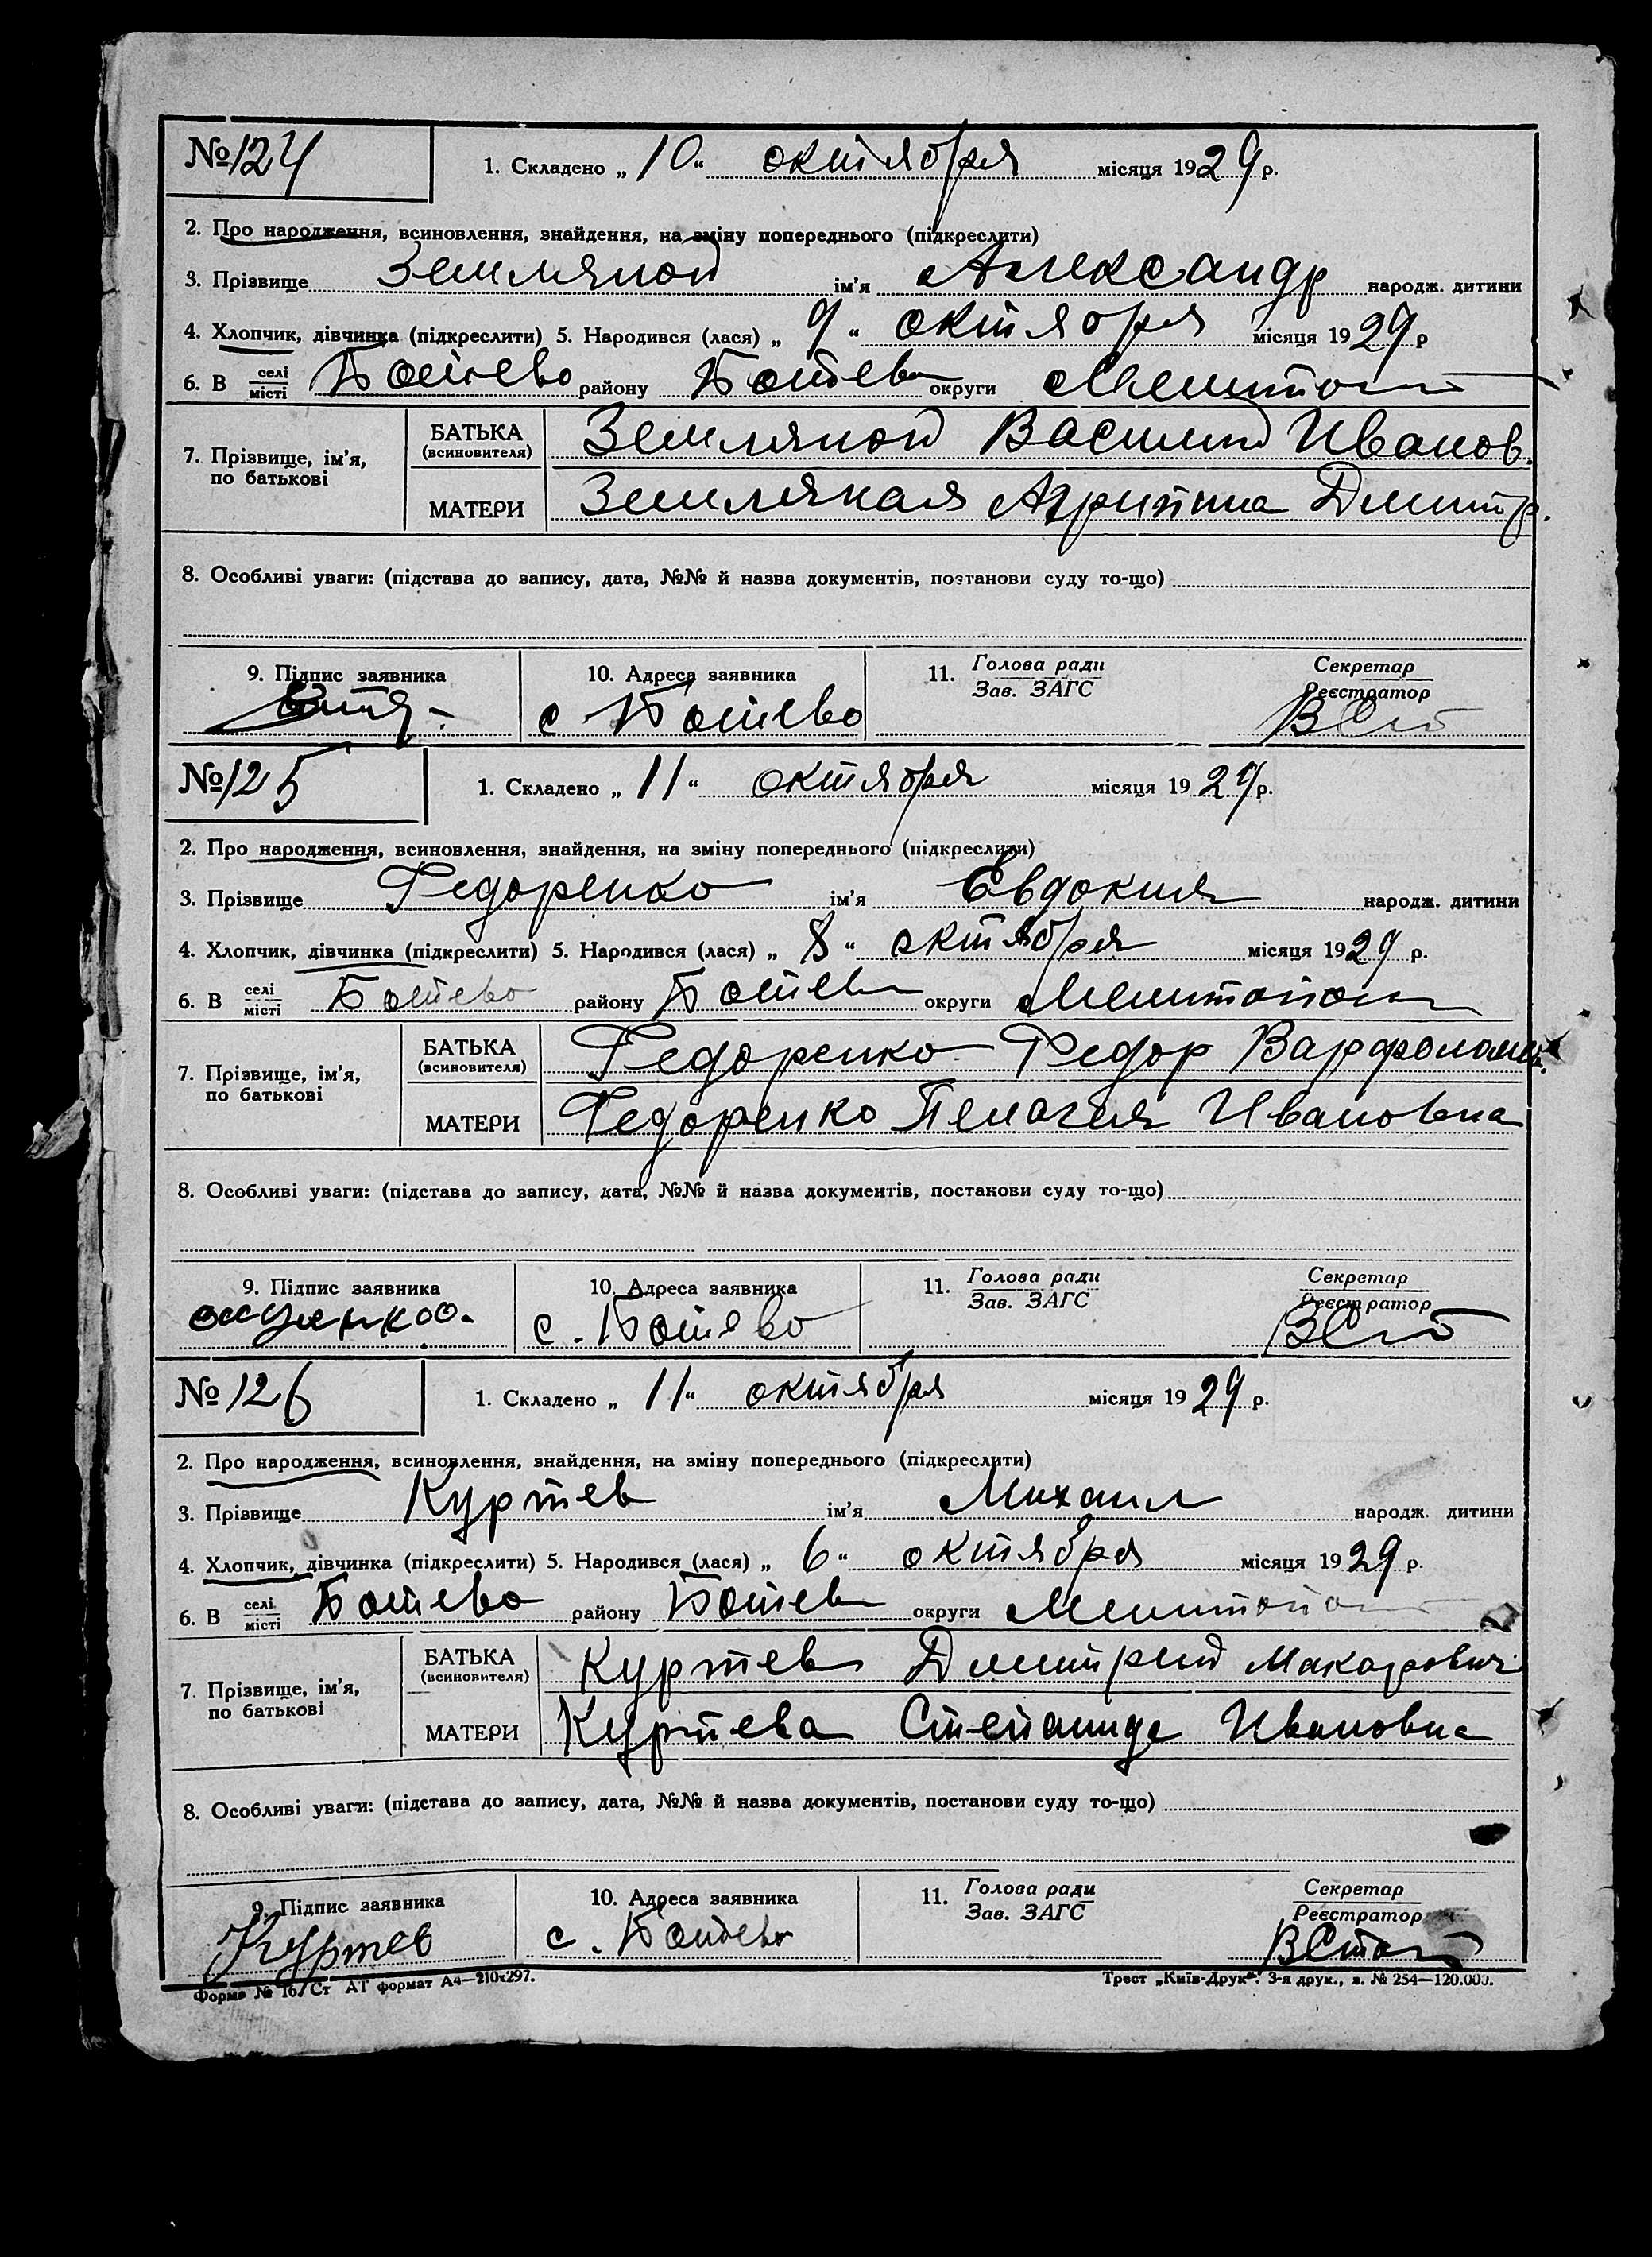 № 124
1. Складено „ 10 " октября місяця 1929 р.
2. Про народження, всиновлення, знайдення, на зміну попереднього (підкреслити)
3. Прізвище Земляной ім'я Александр народж. дитини
4. Хлопчик, дівчинка (підкреслити) 5. Народився (лася) „ 9 " октября місяця 1929 р
6. В селі/місті Ботево району Ботев округи Мелитоп
7. Прізвище, ім'я, по батькові
БАТЬКА (всиновителя) Земляной Василий Иванов.
МАТЕРИ Земляная Агрипина Дмитр.
8. Особливі уваги: (підстава до запису, дата, №№ й назва документів, постанови суду то-що)
9. Підпис заявника 10. Адреса заявника 11. Голова ради Зав. ЗАГС Секретар Реєстратор
с Ботево
№ 125
1. Складено „ 11 " октября місяця 1929 р.
2. Про народження, всиновлення, знайдення, на зміну попереднього (підкреслити)
3. Прізвище Федоренко ім'я Евдокия народж. дитини
4. Хлопчик, дівчинка (підкреслити) 5. Народився (лася) „ 8 " октября місяця 1929 р.
6. В селі/місті Ботево району Ботев округи Мелитопол
7. Прізвище, ім'я, по батькові
БАТЬКА (всиновителя) Федоренко Федор Варфоломей.
МАТЕРИ Федоренко Пелагея Ивановна
8. Особливі уваги: (підстава до запису, дата, №№ й назва документів, постанови суду то-що)
9. Підпис заявника 10. Адреса заявника 11. Голова ради Зав. ЗАГС Секретар Реєстратор
с. Ботево
№ 126
1. Складено „ 11 " октября місяця 1929 р.
2. Про народження, всиновлення, знайдення, на зміну попереднього (підкреслити)
3. Прізвище Куртев ім'я Михаил народж. дитини
4. Хлопчик, дівчинка (підкреслити) 5. Народився (лася) „ 6 " октября місяця 1929 р.
6. В селі/місті Ботево району Ботев округи Мелитопол
7. Прізвище, ім'я, по батькові
БАТЬКА (всиновителя) Куртев Дмитрий Макарович
МАТЕРИ Куртева Степанида Ивановна
8. Особливі уваги: (підстава до запису, дата, №№ й назва документів, постанови суду то-що)
9. Підпис заявника 10. Адреса заявника 11. Голова ради Зав. ЗАГС Секретар Реєстратор
Куртев с. Ботево
Форма № 16/Ст АТ формат А4—210х297. Трест „Київ-Друк". 3-я друк., з. № 254—120.000.